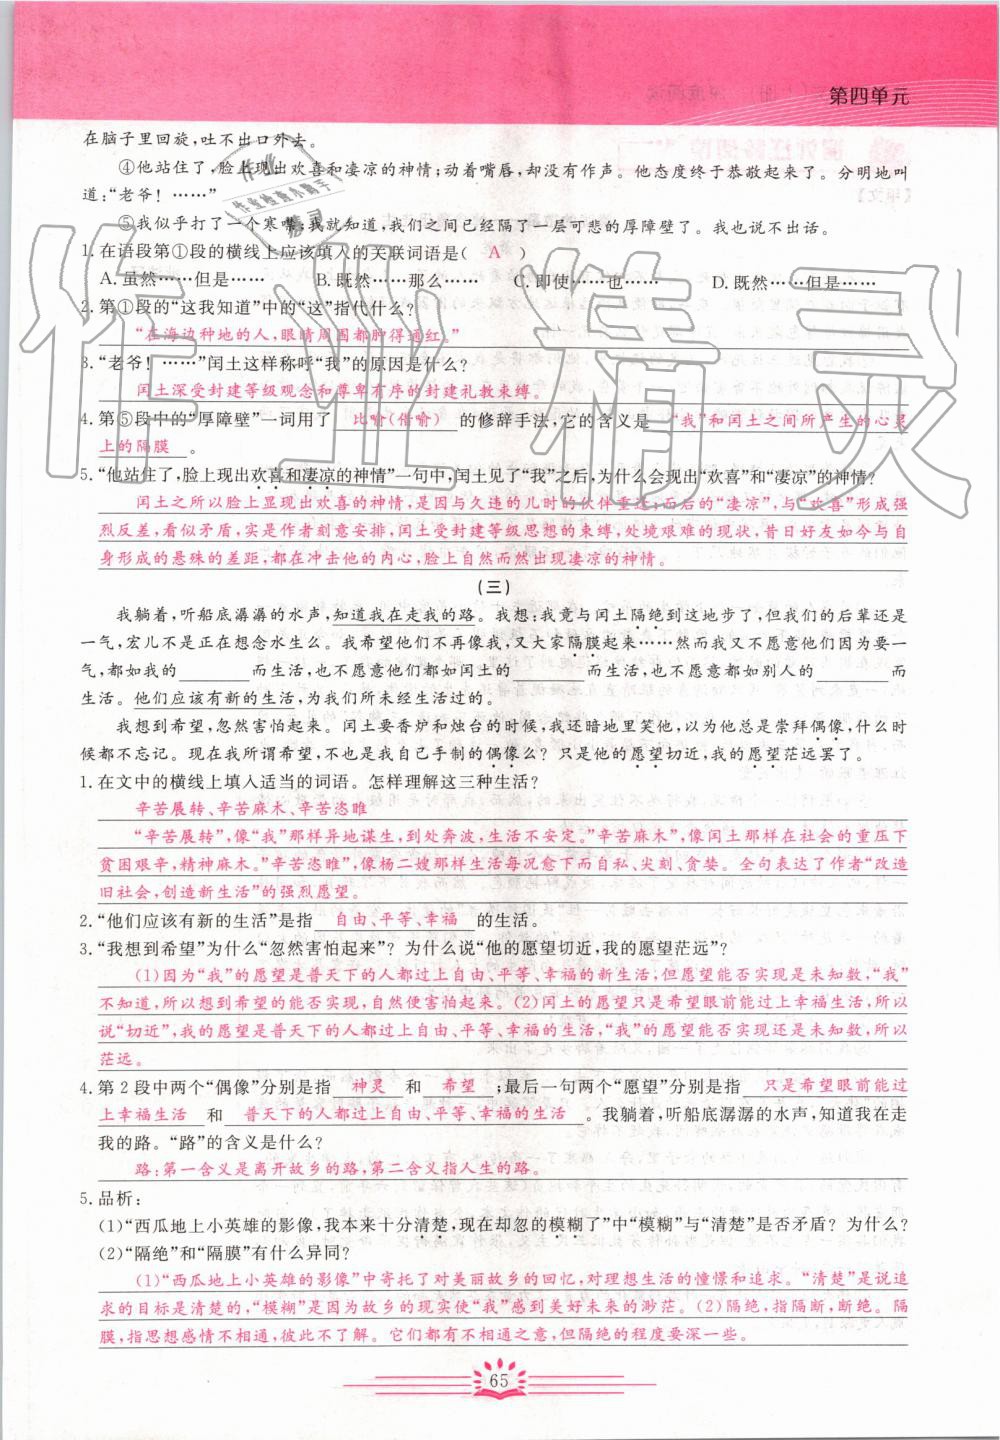 第四单元
在脑子里回旋,吐不出口外去。
④他站住了,脸上现出欢喜和凄凉的神情;动着嘴唇,却没有作声。他的态度终于恭敬起来了。分明地叫
道:“老爷!……”
⑤我似乎打了一个寒噤;我就知道,我们之间已经隔了一层可悲的厚障壁了。我也说不出话。
1.在语段第①段的横线上应该填入的关联词语是( A )
A.虽然……但是…… B.既然……那么…… C.即使……也…… D.既然……但是……
2.第①段的“这我知道”中的“这”指代什么?
“在海边种地的人,眼睛周围都肿得通红。”
3.“老爷!……”闰土这样称呼“我”的原因是什么?
闰土深受封建等级观念和尊卑有序的封建礼教束缚。
4.第⑤段中的“厚障壁”一词用了 比喻(借喻) 的修辞手法,它的含义是 “我”和闰土之间所产生的心灵
上的隔膜 。
5.“他站住了,脸上现出欢喜和凄凉的神情”一句中,闰土见了“我”之后,为什么会现出“欢喜”和“凄凉”的神情?
闰土之所以脸上显现出欢喜的神情,是因与久违的儿时的伙伴重逢;而后的“凄凉”,与“欢喜”形成强
烈反差,看似矛盾,实是作者刻意安排,闰土受封建等级思想的束缚,处境艰难的现状,昔日好友如今与自
身形成的悬殊的差距,都在冲击他的内心,脸上自然而然出现凄凉的神情。
(三)
我躺着,听船底潺潺的水声,知道我在走我的路。我想:我竟与闰土隔绝到这地步了,但我们的后辈还是
一气,宏儿不是正在想念水生么。我希望他们不再像我,又大家隔膜起来……然而我又不愿意他们因为要一
气,都如我的________而生活,也不愿意他们都如闰土的________而生活,也不愿意都如别人的________而
生活。他们应该有新的生活,为我们所未经生活过的。
我想到希望,忽然害怕起来。闰土要香炉和烛台的时候,我还暗地里笑他,以为他总是崇拜偶像,什么时
候都不忘记。现在我所谓希望,不也是我自己手制的偶像么?只是他的愿望切近,我的愿望茫远罢了。
1.在文中的横线上填入适当的词语。怎样理解这三种生活?
辛苦展转、辛苦麻木、辛苦恣睢
“辛苦展转”,像“我”那样异地谋生,到处奔波,生活不安定。“辛苦麻木”,像闰土那样在社会的重压下
贫困艰辛,精神麻木。“辛苦恣睢”,像杨二嫂那样生活每况愈下而自私、尖刻、贪婪。全句表达了作者“改造
旧社会,创造新生活”的强烈愿望。
2.“他们应该有新的生活”是指 自由、平等、幸福 的生活。
3.“我想到希望”为什么“忽然害怕起来”?为什么说“他的愿望切近,我的愿望茫远”?
(1)因为“我”的愿望是普天下的人都过上自由、平等、幸福的新生活,但愿望能否实现是未知数,“我”
不知道,所以想到希望的能否实现,自然便害怕起来。(2)闰土的愿望只是希望眼前能过上幸福生活,所以
说“切近”,我的愿望是普天下的人都过上自由、平等、幸福的生活,“我”的愿望能否实现还是未知数,所以
茫远。
4.第2段中两个“偶像”分别是指 神灵 和 希望 ;最后一句两个“愿望”分别是指 只是希望眼前能过
上幸福生活 和 普天下的人都过上自由、平等、幸福的生活 。我躺着,听船底潺潺的水声,知道我在走
我的路。“路”的含义是什么?
路:第一含义是离开故乡的路,第二含义指人生的路。
5.品析:
(1)“西瓜地上小英雄的影像,我本来十分清楚,现在却忽的模糊了”中“模糊”与“清楚”是否矛盾?为什么?
(2)“隔绝”和“隔膜”有什么异同?
(1)“西瓜地上小英雄的影像”中寄托了对美丽故乡的回忆,对理想生活的憧憬和追求。“清楚”是说追
求的目标是清楚的,“模糊”是因为故乡的现实使“我”感到美好未来的渺茫。(2)隔绝,指隔断,断绝。隔
膜,指思想感情不相通,彼此不了解。它们都有不相通之意,但隔绝的程度要深一些。
65
作业精灵
作业
作业检查小帮手
精灵